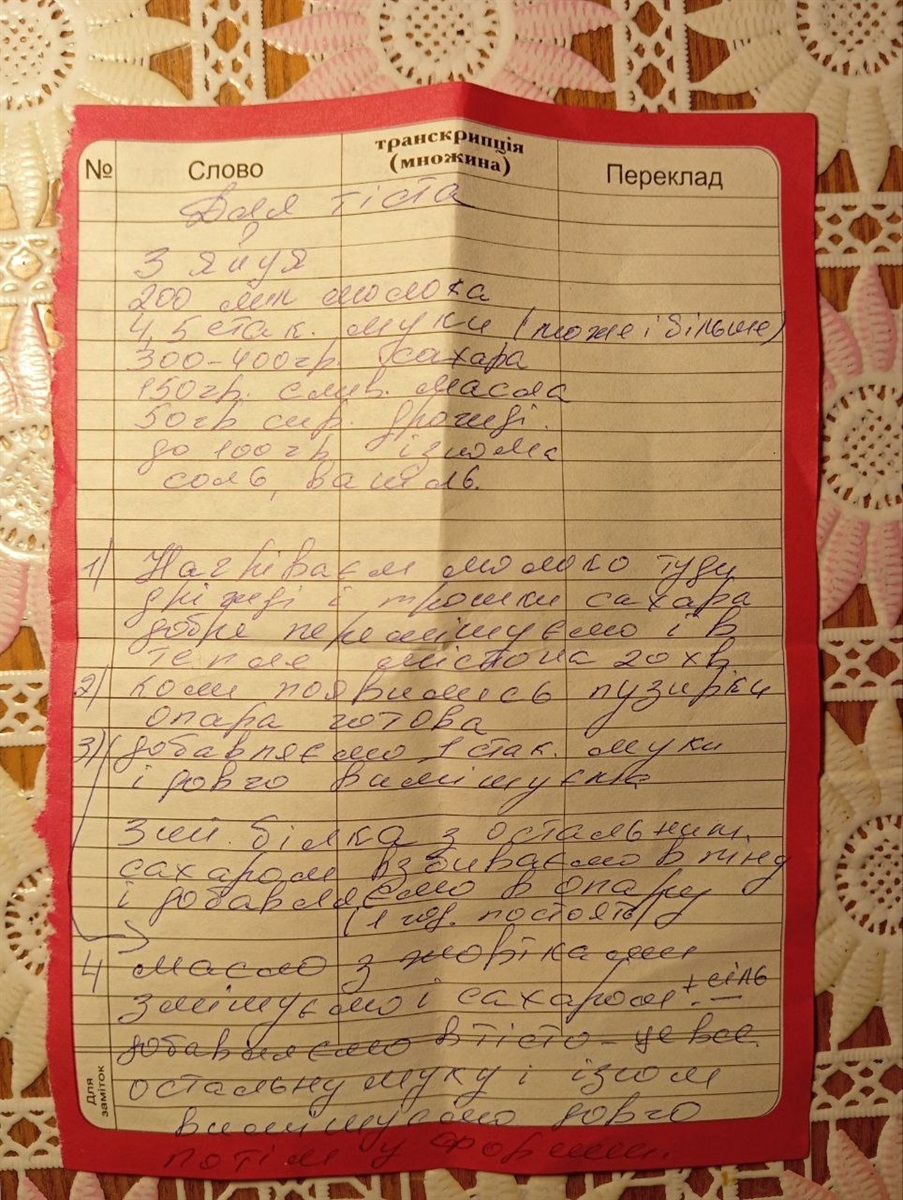 № Слово транскрипція (множина) Переклад
Для тіста
3 яйця
200 мл молока
4,5 стак. муки (може і більше)
300-400гр. сахара
150гр. слив. масла
50гр сир. дрожді.
до 100гр ізюма
соль, ваніль.
1) Нагріваєм молоко туди
дріжді і трошки сахара
добре перемішуємо і в
тепле місто на 20 хв
2) коли появились пузирки
опара готова
3) добавляємо 1 стак. муки
і довго вимішуємо
білка з остальним
сахаром взбиваємо в піну
і добавляємо в опару
(1 год. постоять)
4 масло з жовтками
змішуємо і сахаром + сіль
добавляємо в тісто - це все
остальну муку і ізюм
вимішуємо довго
потім у форми.
Для заміток